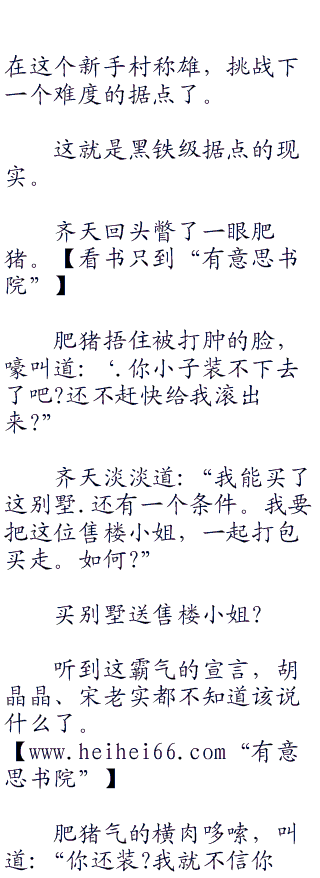 在这个新手村称雄，挑战下
一个难度的据点了。
这就是黑铁级据点的现
实。
齐天回头瞥了一眼肥
猪。【看书只到“有意思书
院”】
肥猪捂住被打肿的脸，
嚎叫道：‘.你小子装不下去
了吧?还不赶快给我滚出
来?”
齐天淡淡道：“我能买了
这别墅.还有一个条件。我要
把这位售楼小姐，一起打包
买走。如何?”
买别墅送售楼小姐?
听到这霸气的宣言，胡
晶晶、宋老实都不知道该说
什么了。
【www.heihei66.com“有意
思书院”】
肥猪气的横肉哆嗦，叫
道：“你还装?我就不信你